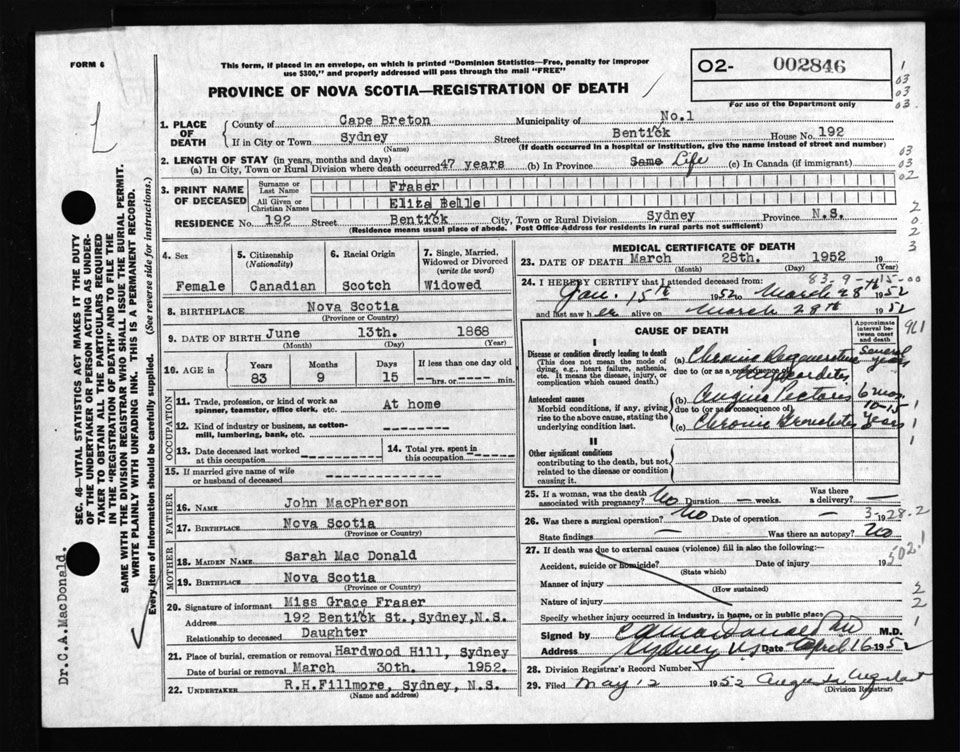 FORM 6
This form, if placed in an envelope, on which is printed "Dominion Statistics—Free, penalty for improper
use $300," and properly addressed will pass through the mail "FREE"
PROVINCE OF NOVA SCOTIA—REGISTRATION OF DEATH
O2- 002846
For use of the Department only
1. PLACE OF DEATH
County of Cape Breton Municipality of No.1
If in City or Town Sydney Street Bentick House No. 192
(Name) (If death occurred in a hospital or institution, give the name instead of street and number)
2. LENGTH OF STAY (in years, months and days)
(a) In City, Town or Rural Division where death occurred 47 years (b) In Province Same Life (c) In Canada (if immigrant)
3. PRINT NAME OF DECEASED
Surname or Last Name Fraser
All Given or Christian Names Eliza Belle
RESIDENCE No. 192 Street Bentick City, Town or Rural Division Sydney Province N.S.
(Residence means usual place of abode. Post Office Address for residents in rural parts not sufficient)
4. Sex
Female
5. Citizenship
(Nationality)
Canadian
6. Racial Origin
Scotch
7. Single, Married,
Widowed or Divorced
(write the word)
Widowed
8. BIRTHPLACE Nova Scotia
(Province or Country)
9. DATE OF BIRTH June 13th. 1868
(Month) (Day) (Year)
10. AGE in
Years Months Days If less than one day old
83 9 15 hrs. or min.
OCCUPATION
11. Trade, profession or kind of work as
spinner, teamster, office clerk, etc. At home
12. Kind of industry or business, as cotton-
mill, lumbering, bank, etc.
13. Date deceased last worked
at this occupation
14. Total yrs. spent in
this occupation
15. If married give name of wife
or husband of deceased
FATHER
16. NAME John MacPherson
17. BIRTHPLACE Nova Scotia
(Province or Country)
MOTHER
18. MAIDEN NAME Sarah Mac Donald
19. BIRTHPLACE Nova Scotia
(Province or Country)
20. Signature of informant Miss Grace Fraser
Address 192 Bentick St., Sydney, N.S.
Relationship to deceased Daughter
21. Place of burial, cremation or removal Hardwood Hill, Sydney
Date of burial or removal March 30th. 1952.
22. UNDERTAKER R.H.Fillmore, Sydney, N.S.
(Name and address)
MEDICAL CERTIFICATE OF DEATH
23. DATE OF DEATH March 28th. 1952 19
(Month) (Day) (Year)
83-9-15-00
24. I HEREBY CERTIFY that I attended deceased from:
Jan. 15th 1952 to March 28th 1952
and last saw her alive on March 28th 1952
CAUSE OF DEATH
Approximate interval between onset and death
I
Disease or condition directly leading to death
(This does not mean the mode of
dying, e.g., heart failure, asthenia,
etc. It means the disease, injury, or
complication which caused death.)
(a) Chronic Degenerative Several years
due to (or as a consequence of)
Myocarditis
Antecedent causes
Morbid conditions, if any, giving
rise to the above cause, stating the
underlying condition last.
(b) Angina Pectoris 6 mos
due to (or as a consequence of)
(c) Chronic Bronchitis 10-15 years
II
Other significant conditions
contributing to the death, but not
related to the disease or condition
causing it.
25. If a woman, was the death
associated with pregnancy? No Duration — weeks. Was there
a delivery? —
26. Was there a surgical operation? No Date of operation — 19
State findings — Was there an autopsy? No
27. If death was due to external causes (violence) fill in also the following:—
Accident, suicide or homicide? Date of injury 19
(State which)
Manner of injury
(How sustained)
Nature of injury
Specify whether injury occurred in industry, in home, or in public place
Signed by C A MacDonald M.D.
Address Sydney N.S Date April 16 1952
28. Division Registrar's Record Number
29. Filed May 12 1952
(Division Registrar)
SEC. 46—VITAL STATISTICS ACT MAKES IT THE DUTY
OF THE UNDERTAKER OR PERSON ACTING AS UNDER-
TAKER TO OBTAIN ALL THE PARTICULARS REQUIRED
IN THE "REGISTRATION OF DEATH" AND TO FILE THE
SAME WITH THE DIVISION REGISTRAR WHO SHALL ISSUE THE BURIAL PERMIT.
WRITE PLAINLY WITH UNFADING INK. THIS IS A PERMANENT RECORD.
Every item of information should be carefully supplied. (See reverse side for instructions.)
Dr.C.A.MacDonald.